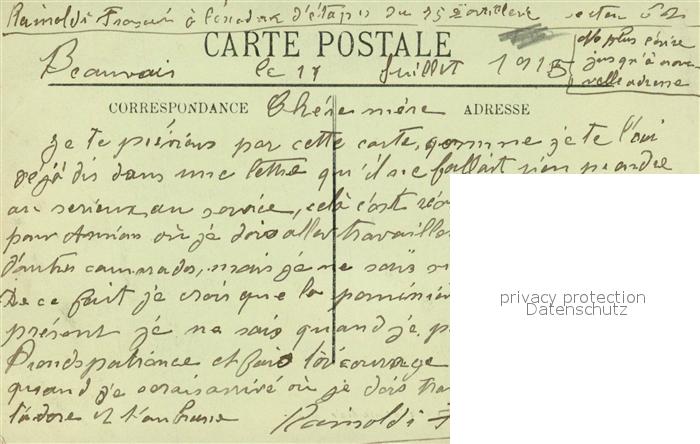 Rainoldi François à l'escadre d'étapes du 35 Dartillerie secteur
CARTE POSTALE
Ne plus écrire
jusqu'à nou
velle adresse
Beauvais le 17 Juillet 1915
CORRESPONDANCE Chère mère ADRESSE
Je te préviens par cette carte, comme je te l'ai
déjà dis dans une lettre qu'il ne fallait rien prendre
au serieux au service, celà c'est
pour Amiens où je dois aller travailler
d'autres camarades, mais je ne sais
De ce fait je crois que la permission
présent je ne sais quand je
Prends patience et fais toi courage
quand je serais arrivé où je dois
t'adore et t'embrasse Rainoldi F
privacy protection
Datenschutz